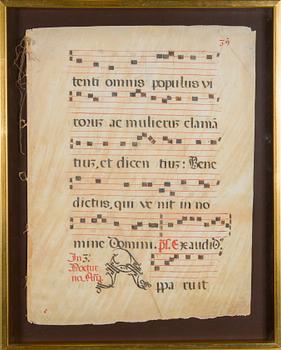 tenti omnis populus vi
rorus ac mulierus clamā
tius, et dicen tius: Bene
dictus, qui ve nit in no
mine Domini. ps. Exaudiō.
In 3.
Noctur
no. Anā.
A ppa ru it